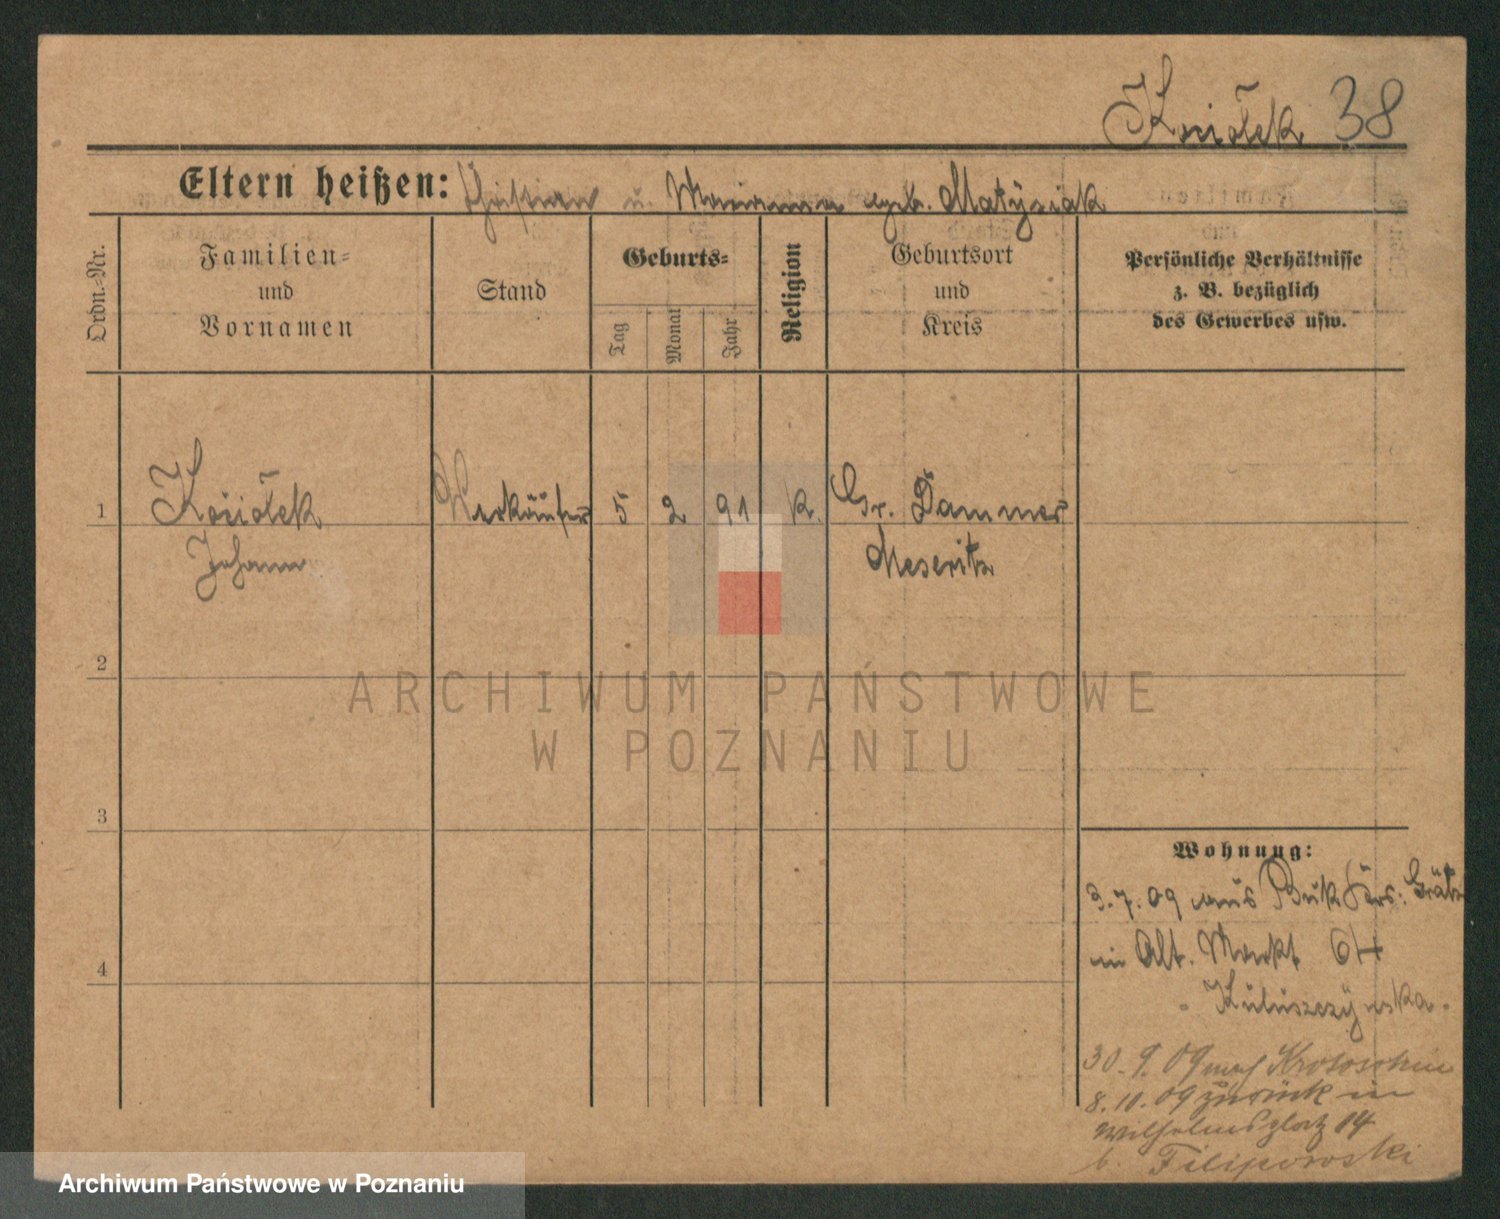 Kosiołek 38
Eltern heißen: Christian u. Marianna geb. Matysiak
Ordn.-Nr.
Familien-
und
Vornamen
Stand
Geburts-
Tag
Monat
Jahr
Religion
Geburtsort
und
Kreis
Persönliche Verhältnisse
z. B. bezüglich
des Gewerbes usw.
1 Kosiołek Verkäufer 5 2 91 K. Gr. Dammer
Johann Meseritz
2
3
4
Wohnung:
3.7.09 aus Buk Grätz
in Alt. Markt 64
30.9.09 nach Krotoschin
8.10.09 zurück in
Wilhelmsplatz 14
b. Filipowski
ARCHIWUM PAŃSTWOWE
W POZNANIU
Archiwum Państwowe w Poznaniu